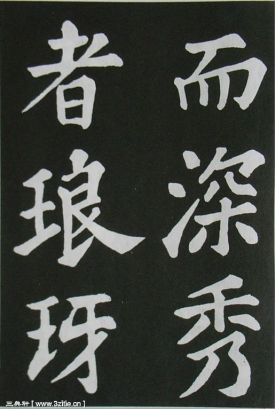 而深秀
者琅玡
三典轩[www.3zitie.cn]